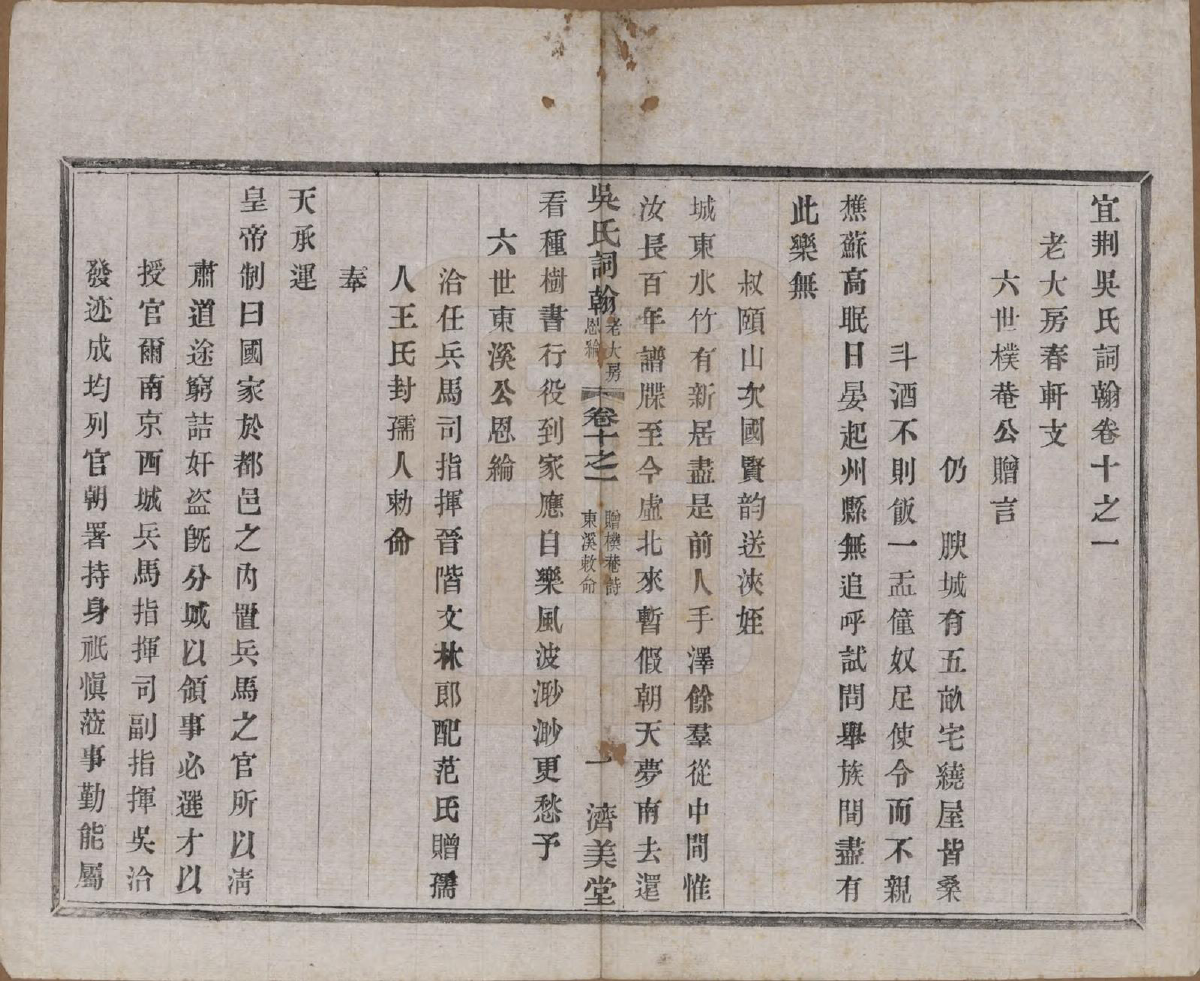 宜荆吳氏詞翰卷十之一
老大房春軒支
六世樸菴公贈言
仍 腴城有五畝宅繞屋皆桑
斗酒不則飯一盂僮奴足使令而不親
樵蘇高眠日晏起州縣無追呼試問舉族間盡有
此樂無
叔頤山次國賢韵送浹姪
城東水竹有新居盡是前人手澤餘羣從中間惟
汝長百年譜牒至今虛北來暫假朝天夢南去還
吳氏詞翰 老大房 恩綸 卷十之一 贈樸菴詩 東溪敕命 一 濟美堂
看種樹書行役到家應自樂風波渺渺更愁予
六世東溪公恩綸
洽任兵馬司指揮晉階文林郎配范氏贈孺
人王氏封孺人勅命
奉
天承運
皇帝制曰國家於都邑之內置兵馬之官所以清
肅道途窮詰奸盗旣分城以領事必選才以
授官爾南京西城兵馬指揮司副指揮吳洽
發迹成均列官朝署持身祇愼蒞事勤能屬